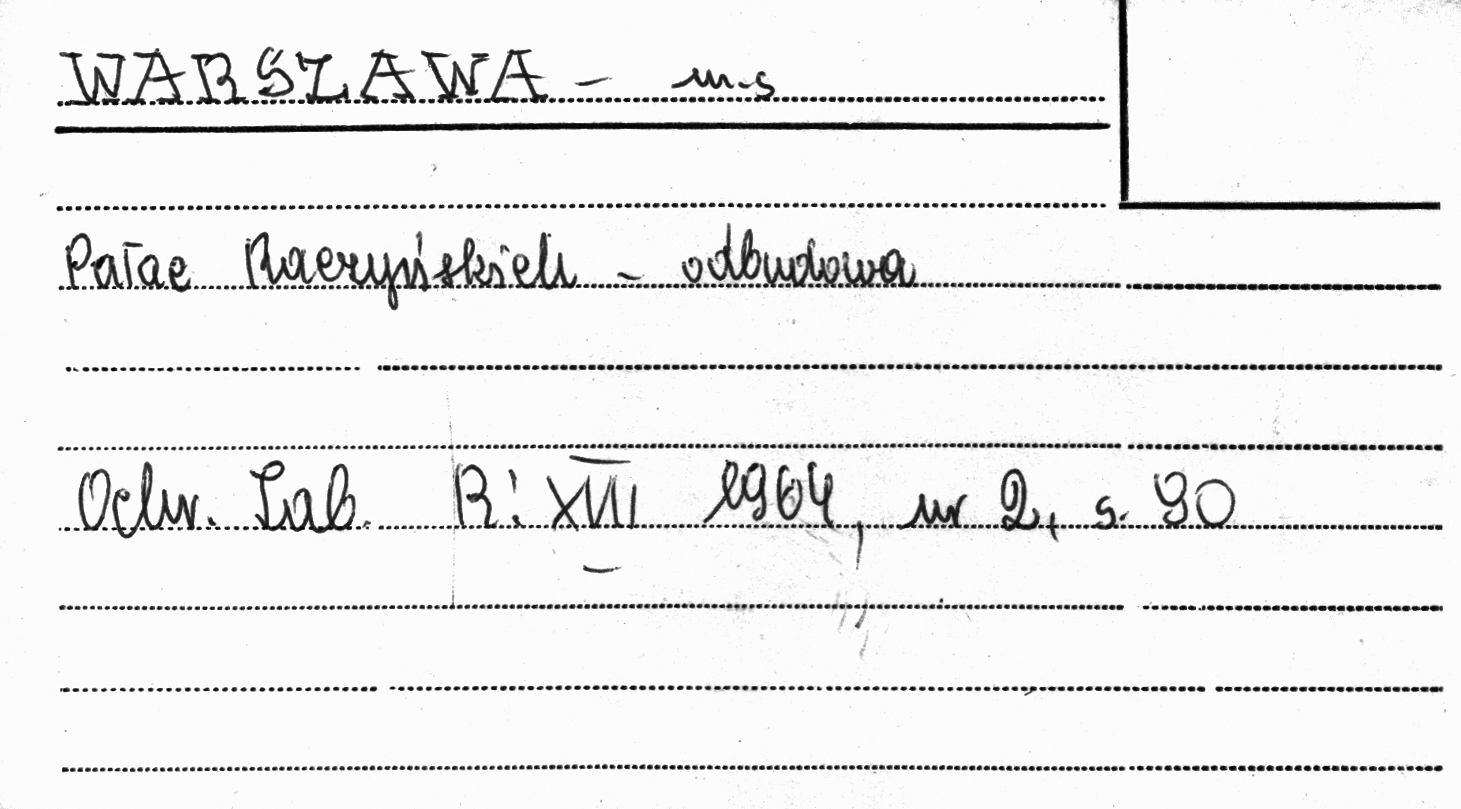 WARSZAWA - m-s
Pałac Raczyńskich - odbudowa
Ochr. Zab. R: XVII 1964, nr 2, s. 90